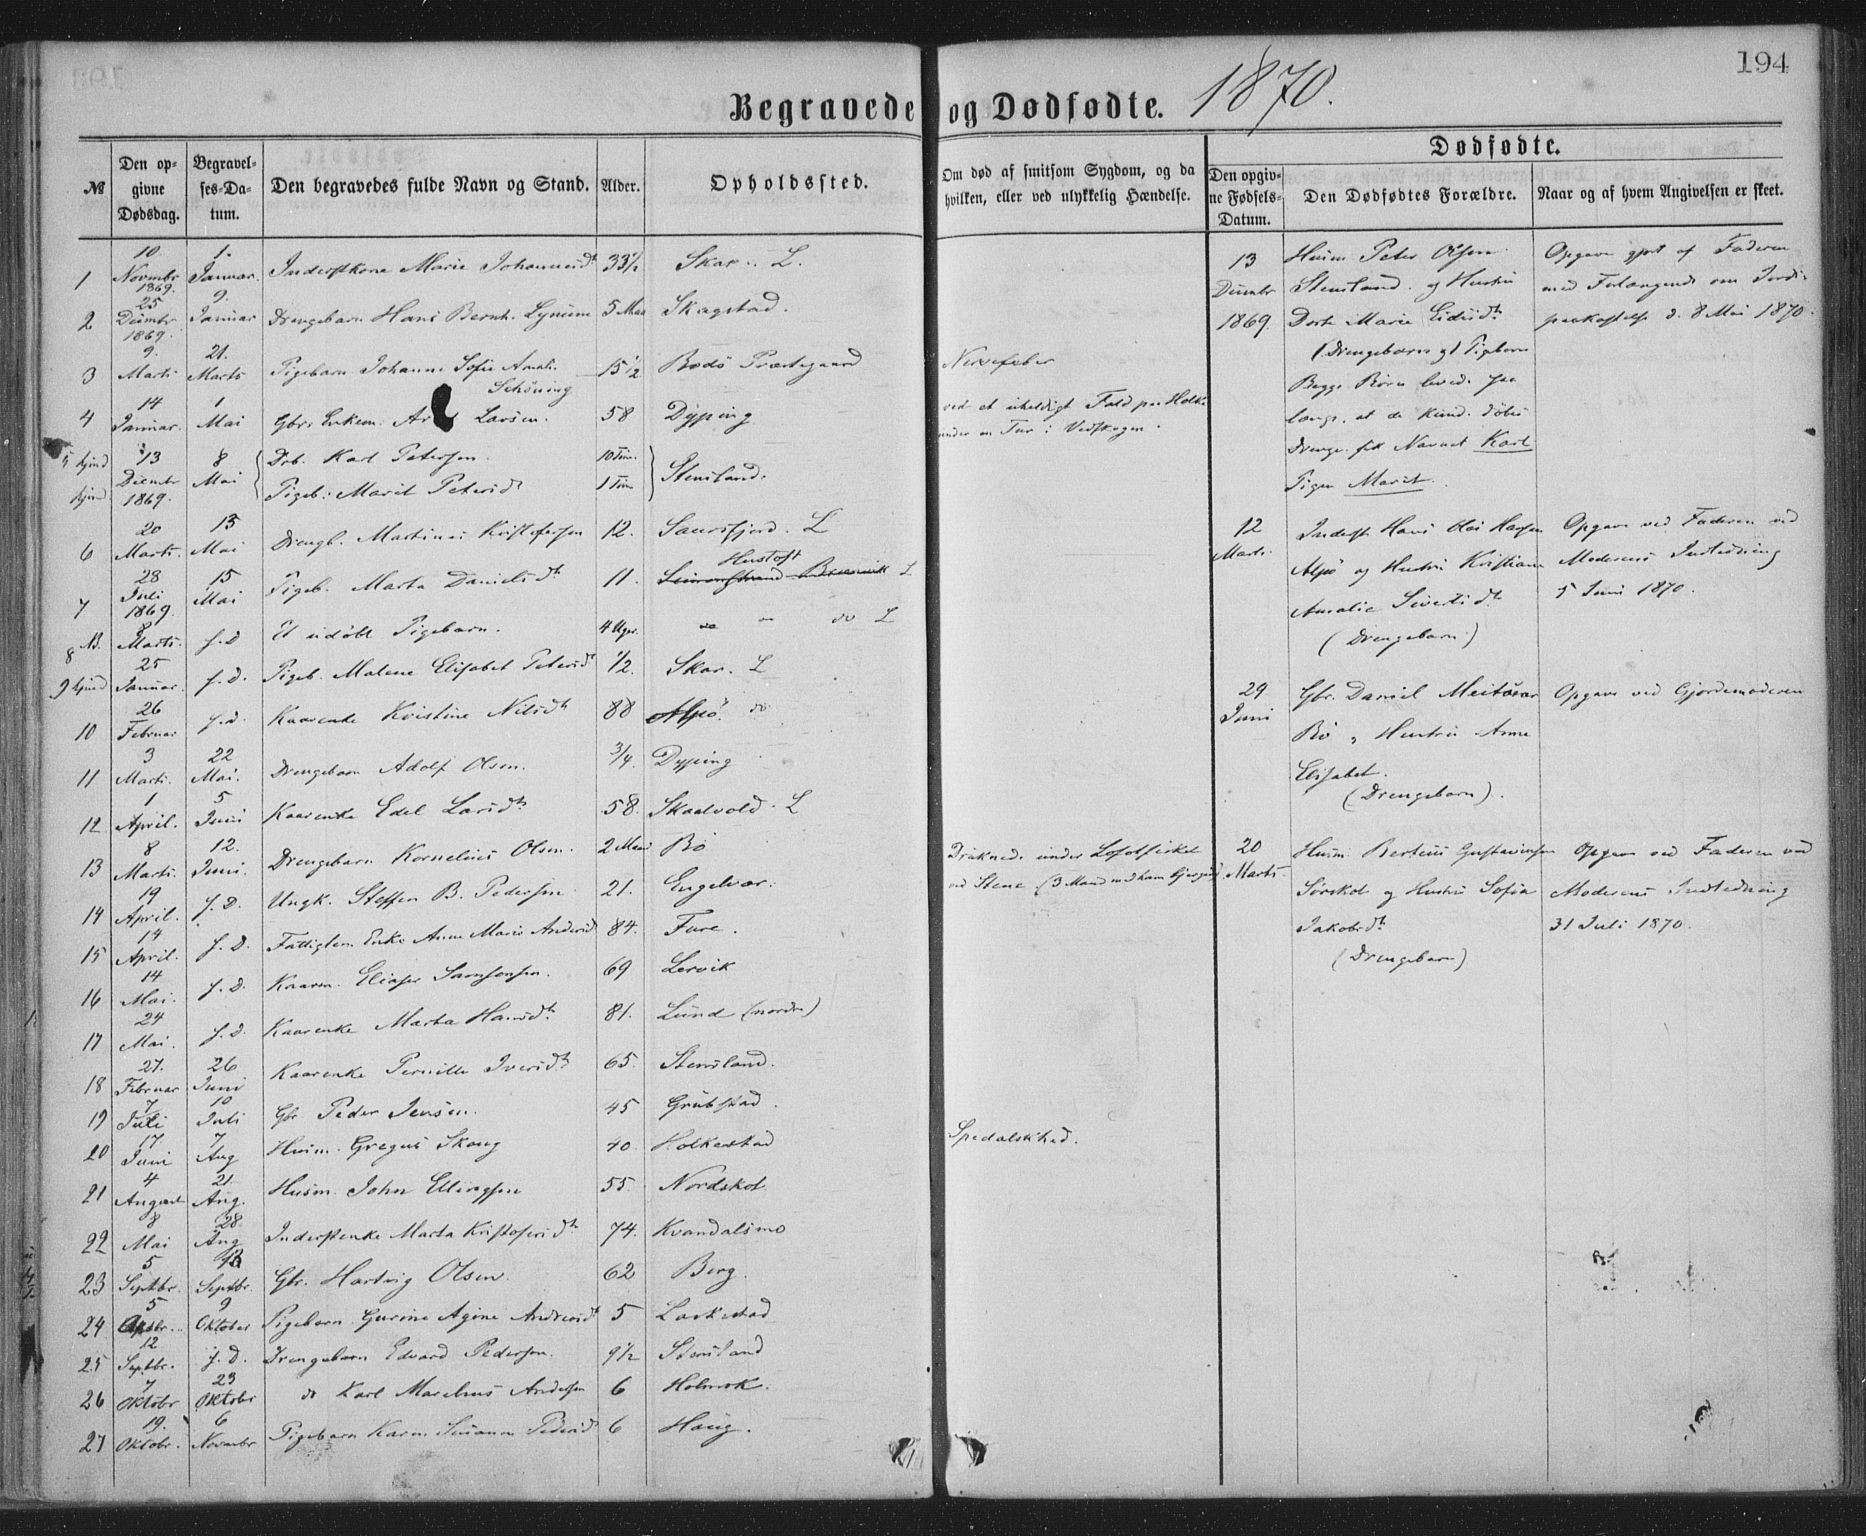 194
Begravede og Dødfødte. 1870.
Dødfødte.
№
Den opgivne Dødsdag.
Begravelses-Datum.
Den begravedes fulde Navn og Stand.
Alder.
Opholdssted.
Om død af smitsom Sygdom, og da hvilken, eller ved ulykkelig Hændelse.
Den opgivne Fødsels-Datum.
Den Dødfødtes Forældre.
Naar og af hvem Angivelsen er skeet.
1 10 Novmbr 1869. 1. Januar. Inderstkone Marie Johannesdt 33½ Skar. L.
2 25 Decmbr 1869. 9. Januar Drengebarn Hans Bernh. 5 Maa Skagstad.
3 9. Marts 21. Marts Pigebarn Johanne Sofie Amali Schöning 15½ Bodö Præstegaard Nervefeber
4 14 Januar. 1 Mai Gbr. Enkem. Larsen. 58 Dyping ved et uheldigt Fald paa
under en Tur i Vedskogen.
5 13 Decmbr 1869. 8 Mai Drb. Karl Petersen. 10 Tim. Stensland.
Pigeb. Marit Petersdt 1 Time
6 20 Marts. 15 Mai Drengb. Martinus Kristofersen 12. L
7 28 Juli 1869. 15 Mai Pigeb. Marta Danielsdt 11. Hustoft L
8 8 Marts. s. d Et udöbt Pigebarn. 4 Uger. do L
9 25 Januar. s. d. Pigeb. Malene Elisabet Petersdt ½ Skar. L
10 26 Februar s. d. Kaarenke Kristine Nilsdt 88 Alpö. do
11 3 Marts. 22 Mai. Drengebarn Adolf Olsen. ¾. Dyping
12 1 April. 5 Juni Kaarenke Edel Larsdt 58. Skaalvold. L
13 8 Marts. 12. Juni. Drengebarn Kornelius Olsen. 2 Maan Bö
14 19 April. s. D. Ungk. Steffen B. Pedersen 21. Engelvær. Druknede under Lofotfisket
ved Stene (3 Mand med ham
15 14 April. s. D. Fattiglem Enke Anne Marie Andersdt 84. Fure.
16 14 Mai. s. D. Kaarm. Elias Samsonsen. 69 Lervik
17 24 Mai. s. D. Kaarenke Marta Hansdt 81. Lund (nordre)
18 27. Februar 26 Juni Kaarenke Pernille Iversdt 65. Stensland.
19 7 Juli 10 Juli Gbr Peder Jensen. 45 Grubstad.
20 17 Juni 7 Aug Husm. Gregus Skaug 40 Holkestad Spedalskhed.
21 4 August 21. Aug. Husm. John Ellingsen 55. Nordskot
22 8 Mai 28. Aug Inderstenke Marta Kristofersdt 74. Kvandalsmo
23 5 Septbr. Septbr. Gbr. Hartvig Olsen. 62 Berg.
24 5 9 Oktober Pigebarn Gurine Agine Andersdt 5 Laskestad
25 12 Septbr. s. d. Drengebarn Edvard Pedersen. 9½ Stensland
26 7 Oktobr 23 Oktobr do Karl Marelius Andersen 6
27 19. Oktobr. 6 Novmbr Pigebarn Karen Susanne Pedersdt 6 Haug.
13 Decmbr 1869 Husm Peter Olsen
Stensland og Hustru
Dorte Marie Eidisdt
(Drengebarn og Pigebarn
Begge Börn levede saa
længe, at de kund. döbes
Drengen fik Navnet Karl
Pigen Marit.
Opgave gjort af Faderen
med Forlangende om Jords-
paakastelse d. 8 Mai 1870.
12 Marts. Inderst Hans Olai Hansen
Alpö og Hustru Kristiane
Amalie Sivertsdt
(Drengebarn)
Opgave ved Faderen ved
Moderens Indledning
5 Juni 1870.
29 Juni Gbr. Daniel
Bö og Hustru Anne
Elisabet.
(Drengebarn).
Opgave ved Gjordemoderen
20 Marts Husm. Bertius Gustavsen
Sörskot og Hustru Sofia
Jakobsdt
(Drengebarn)
Opgave ved Faderen ved
Moderens Indledning
31 Juli 1870.